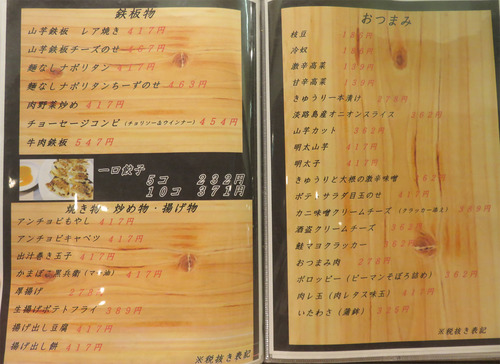 鉄板物
山芋鉄板 レア焼き 417円
山芋鉄板チーズのせ 467円
麺なしナポリタン 417円
麺なしナポリタンちーずのせ 463円
肉野菜炒め 417円
チョーセージコンビ(チョリソー&ウインナー) 454円
牛肉鉄板 547円
一口餃子
5コ 232円
10コ 371円
焼き物・炒め物・揚げ物
アンチョビもやし 417円
アンチョビキャベツ 417円
出汁巻き玉子 417円
かまぼこ黒兵衛 417円
厚揚げ 278円
生揚げポテトフライ 389円
揚げ出し豆腐 417円
揚げ出し餅 417円
※税抜き表記
おつまみ
枝豆
冷奴
激辛高菜 139円
甘辛高菜 139円
きゅうり一本漬け 278円
淡路島産オニオンスライス 362円
山芋カット 362円
明太山芋 417円
明太子 417円
きゅうりと大根の激辛味噌 362円
ポテトサラダ目玉のせ 417円
カニ味噌クリームチーズ(クラッカー添え) 309円
酒盗クリームチーズ 362円
鮭マヨクラッカー 362円
おつまみ肉 278円
ボロッピー(ピーマンそぼろ詰め) 362円
肉レ玉(肉レタス味玉) 417円
いたわさ(蒲鉾) 325円
※税抜き表記